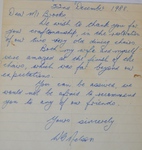 22nd December 1982
Dear Mr Brooks
We wish to thank you for
your craftsmanship in the restoration
of our five day old dining chairs.
Both my wife & myself
were amazed at the finish of the
chairs, which was far beyond our
expectations.
You can be assured, we
would not be afraid to recommend
you to any of our friends
Yours sincerely